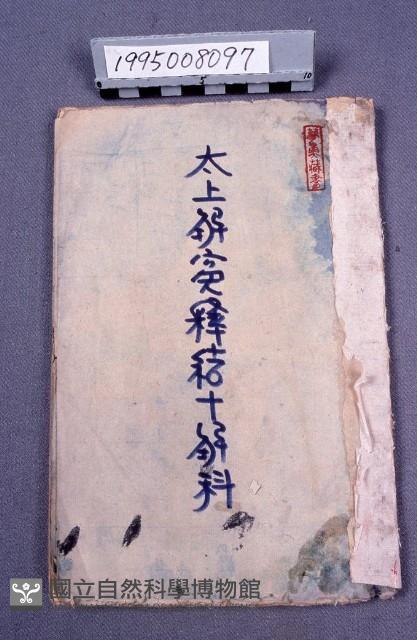 1995008097
5
10
太上解寃釋結十解科
國立自然科學博物館